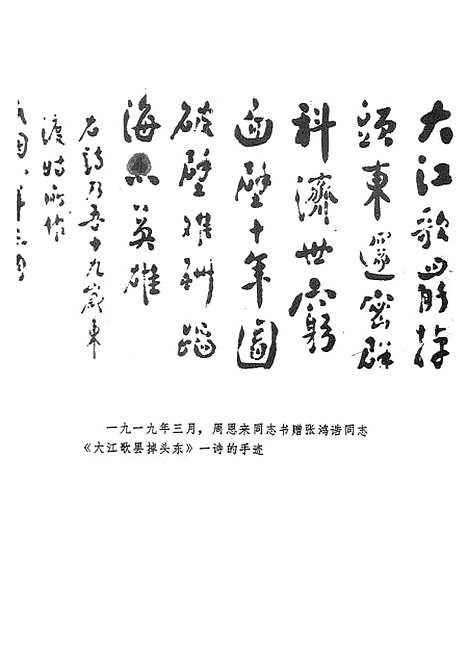 大江歌罷掉
頭東邃密群
科濟世窮
面壁十年圖
破壁難酬蹈
海亦英雄
右詩乃吾十九歲東
渡時所作
八年三月
一九一九年三月，周恩来同志书赠张鸿诰同志
《大江歌罢掉头东》一诗的手迹